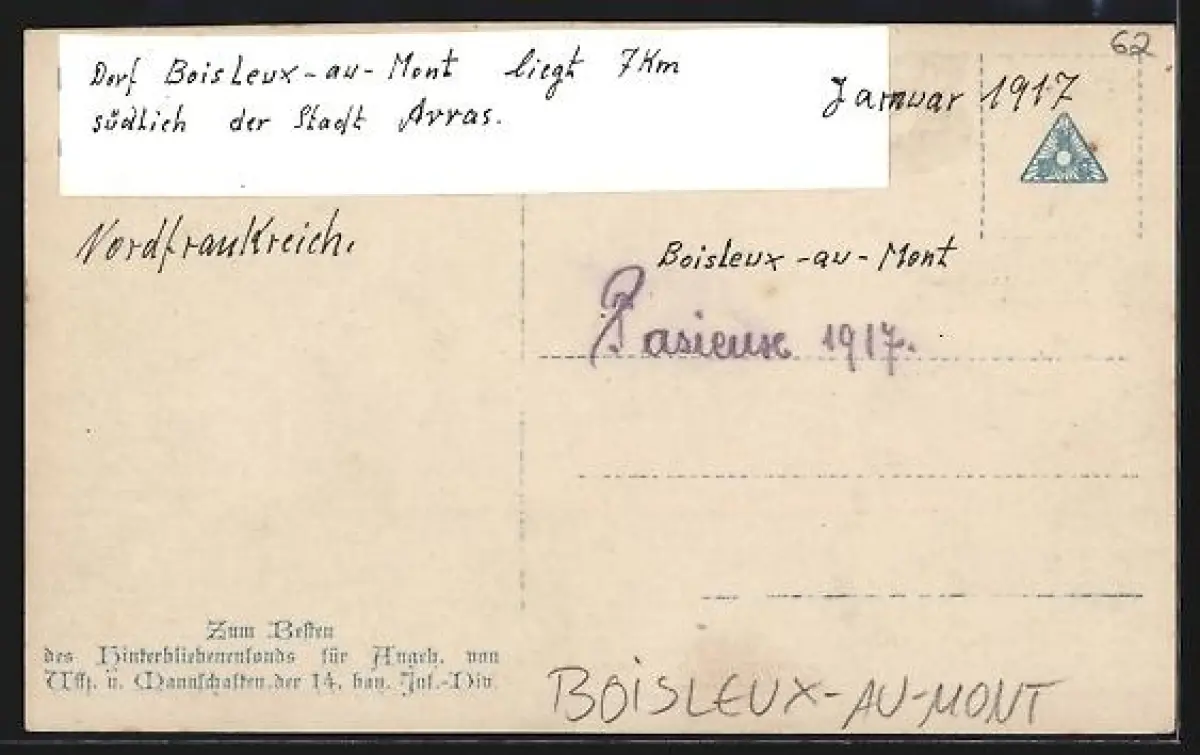 62
Dorf Boisleux-au-Mont liegt 7Km
südlich der Stadt Arras.
Januar 1917
Nordfrankreich.
Boisleux-au-Mont
1917.
Zum Besten
des Hinterbliebenenfonds für Angeh. von
Uffz. u. Mannschaften der 14. bay. Inf.-Div.
BOISLEUX-AU-MONT